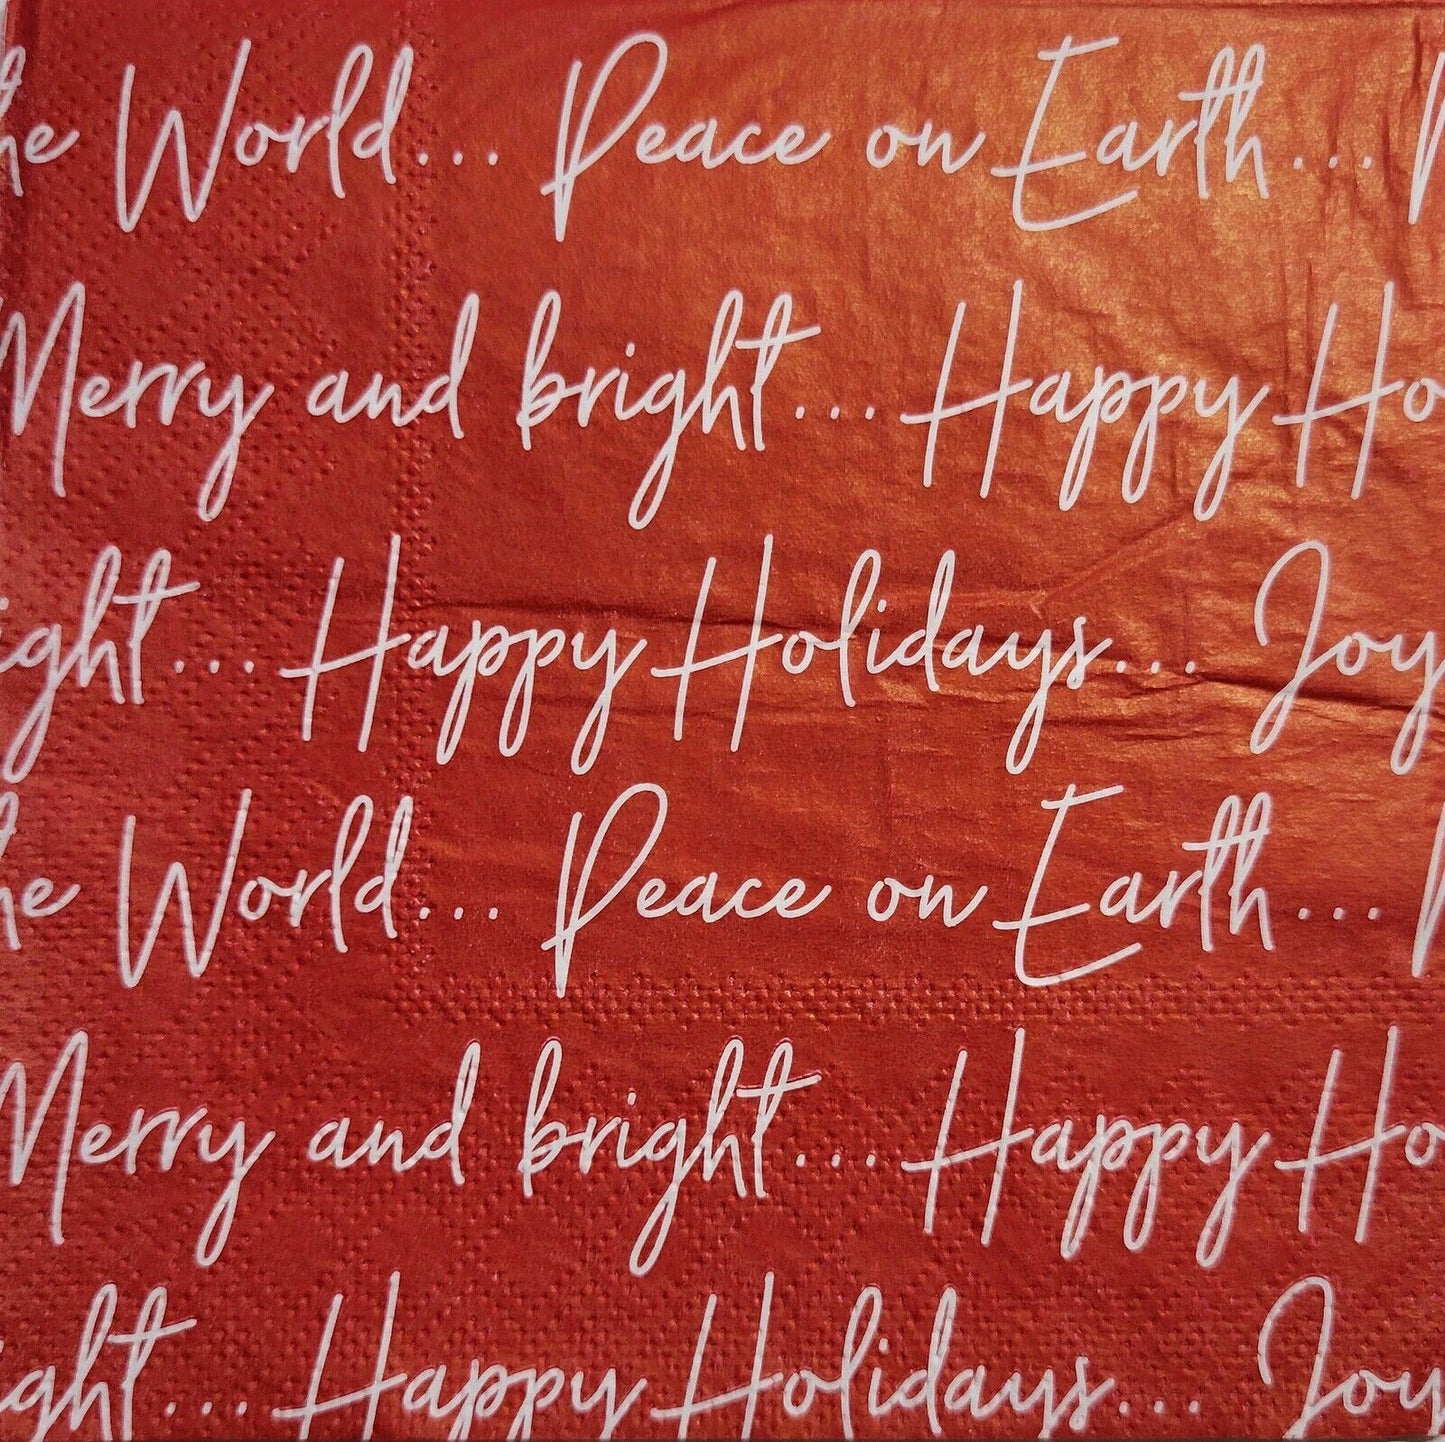 the World... Peace on Earth...
Merry and bright... Happy Ho
ight... Happy Holidays... Joy
the World... Peace on Earth...
Merry and bright... Happy Ho
ight... Happy Holidays... Joy